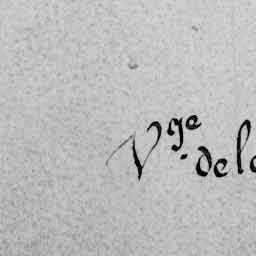 Vge. dela